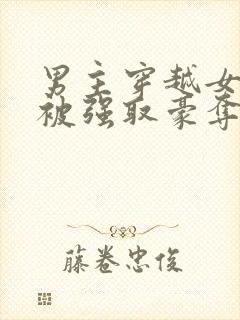 男主穿越女
被强取豪夺
藤卷忠俊